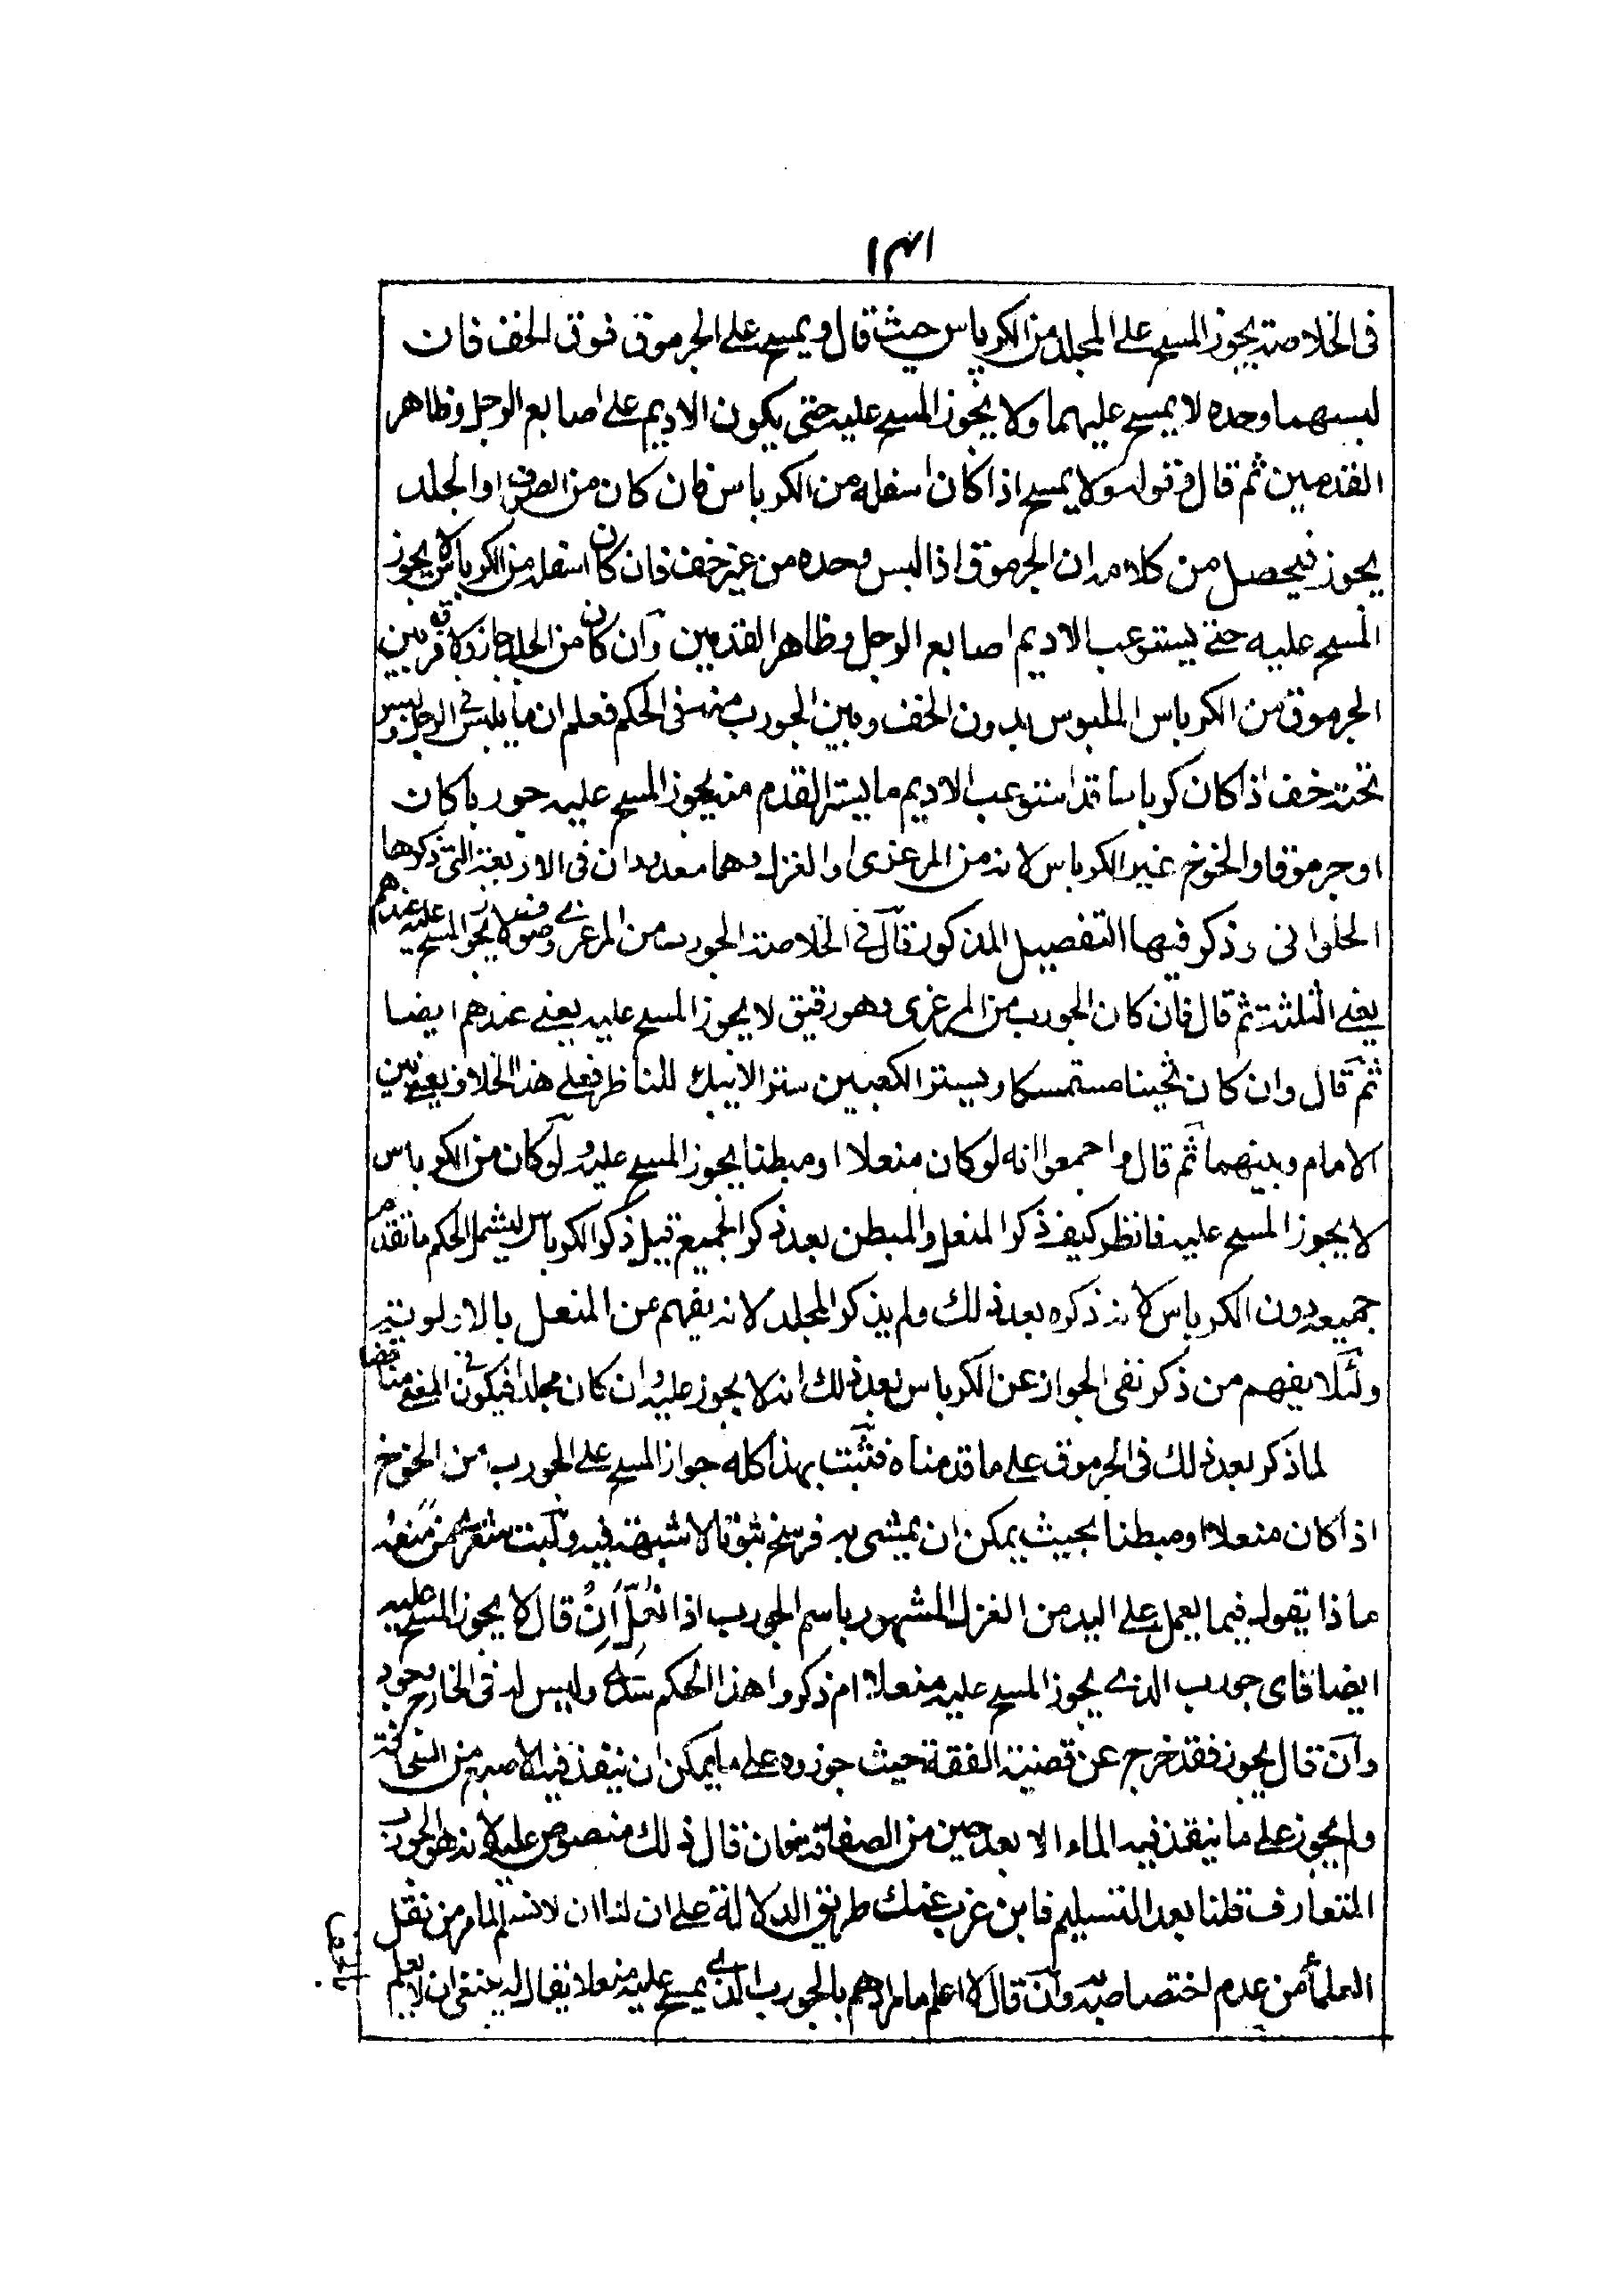 في الخلاصة يجوز المسح على المجلد من الكرباس حيث قال ويمسح على الجرموق فوق الخف فان
لبسهما وحده لا يمسح عليهما ولا يجوز المسح عليه حتى يكون الاديم على اصابع الرجل وظاهر
القدمين ثم قال في قوله ولا يمسح اذا كان اسفله من الكرباس فان كان من الصرف او الجلد
يجوز فيحصل من كلامه ان الجرموق اذا لبس وحده من غير خف فان كان اسفله من الكرباس لا يجوز
المسح عليه حتى يستوعب الاديم اصابع الرجل وظاهر القدمين وان كان من الجلد جاز ولا فرق بين
الجرموق من الكرباس الملبوس بدون الخف وبين الجورب منه في الحكم فعلم ان ما يلبس في الرجل وليس
تحته خف اذا كان كرباسا قد استوعب الاديم ما يستر القدم منه يجوز المسح عليه جوربا كان
او جرموقا والخوخ غير الكرباس لانه من المرعزى او الغزل وهما معدودان في الاربعة التي ذكرها
الحلوانى وذكر فيها التفصيل المذكور قال في الخلاصة الجورب من المرعزى وصوف لا يجوز المسح عليه عندهم
يعنى الثلثة ثم قال فان كان الجورب من المرعزى وهو رقيق لا يجوز المسح عليه يعنى عندهم ايضا
ثم قال وان كان ثخينا مستمسكا ويستر الكعبين سترا لا يبدو للناظر فعلى هذا الخلاف يعنى بين
الامام وبينهما ثم قال واجمعوا انه لو كان منعلا او مبطنا يجوز المسح عليه ولو كان من الكرباس
لا يجوز المسح عليه فانظر كيف ذكر المنعل والمبطن بعد ذكر الجميع قبل ذكر الكرباس ليشمل الحكم ما تقدم
جميعه دون الكرباس لانه ذكره بعد ذلك ولم يذكر المجلد لانه يفهم من المنعل بالاولوية
ولئلا يفهم من ذكر نفى الجواز عن الكرباس بعد ذلك انه لا يجوز عليه وان كان مجلدا فيكون في المعنى مناقضا
لما ذكر بعد ذلك في الجرموق على ما قدمناه فثبت بهذا كله جواز المسح على الجورب من الخوخ
اذا كان منعلا او مبطنا بحيث يمكن ان يمشى به فرسخ ثبوتا لا شبهة فيه وليت شعرى من منعه
ماذا يقول فيما يعمل على اليد من الغزل المشهور باسم الجورب اذا نعل ان قال لا يجوز المسح عليه
ايضا فاى جورب الذى يجوز المسح عليه منعلا ام ذكروا هذا الحكم وليس له في الخارج وجود
وان قال يجوز فقد خرج عن قضية الفقه حيث جوزوه على ما يمكن ان ينفذ فيه الاصبع من
ولم يجوز على ما ينفذ فيه الماء الا بعد حين من الصفاقة فان قال ذلك منصوص عليه لانه هو الجورب
المتعارف قلنا بعد التسليم فاين عزب عنك طريق الدلالة على ان لنا ان لا نسلم لما مر من نقل
العلماء من عدم اختصاصه به وان قال لا اعلم ما مرادهم بالجورب الذى يمسح عليه منعلا يقال له ينبغى ان لا يعلم